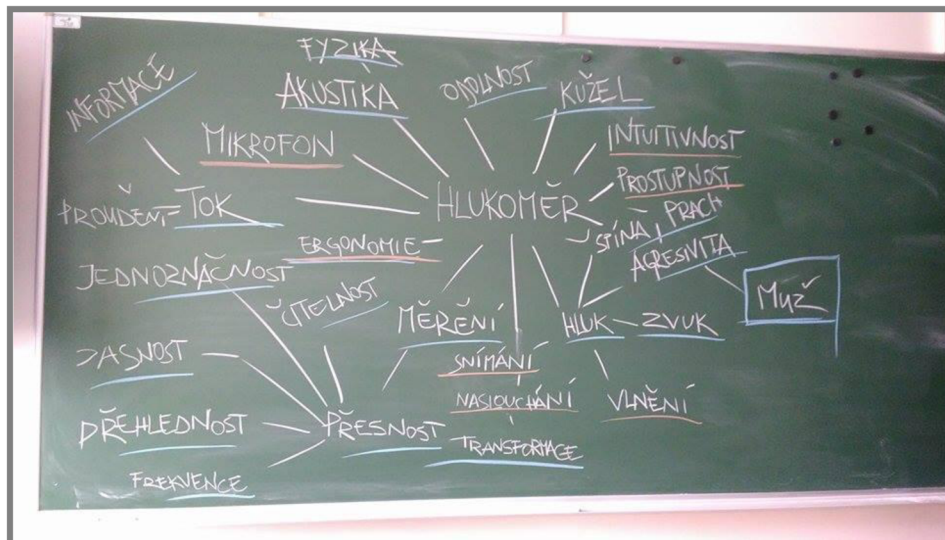 FYZIKA
INFORMACE
AKUSTIKA
ODOLNOST
KUŽEL
MIKROFON
INTUITIVNOST
PROSTUPNOST
HLUKOMĚR
PROUDĚNÍ
TOK
PRACH
ŠPÍNA
ERGONOMIE
AGRESIVITA
JEDNOZNAČNOST
ČITELNOST
MĚŘENÍ
HLUK
ZVUK
MUŽ
JASNOST
SNÍMÁNÍ
NASLOUCHÁNÍ
VLNĚNÍ
PŘEHLEDNOST
PŘESNOST
TRANSFORMACE
FREKVENCE